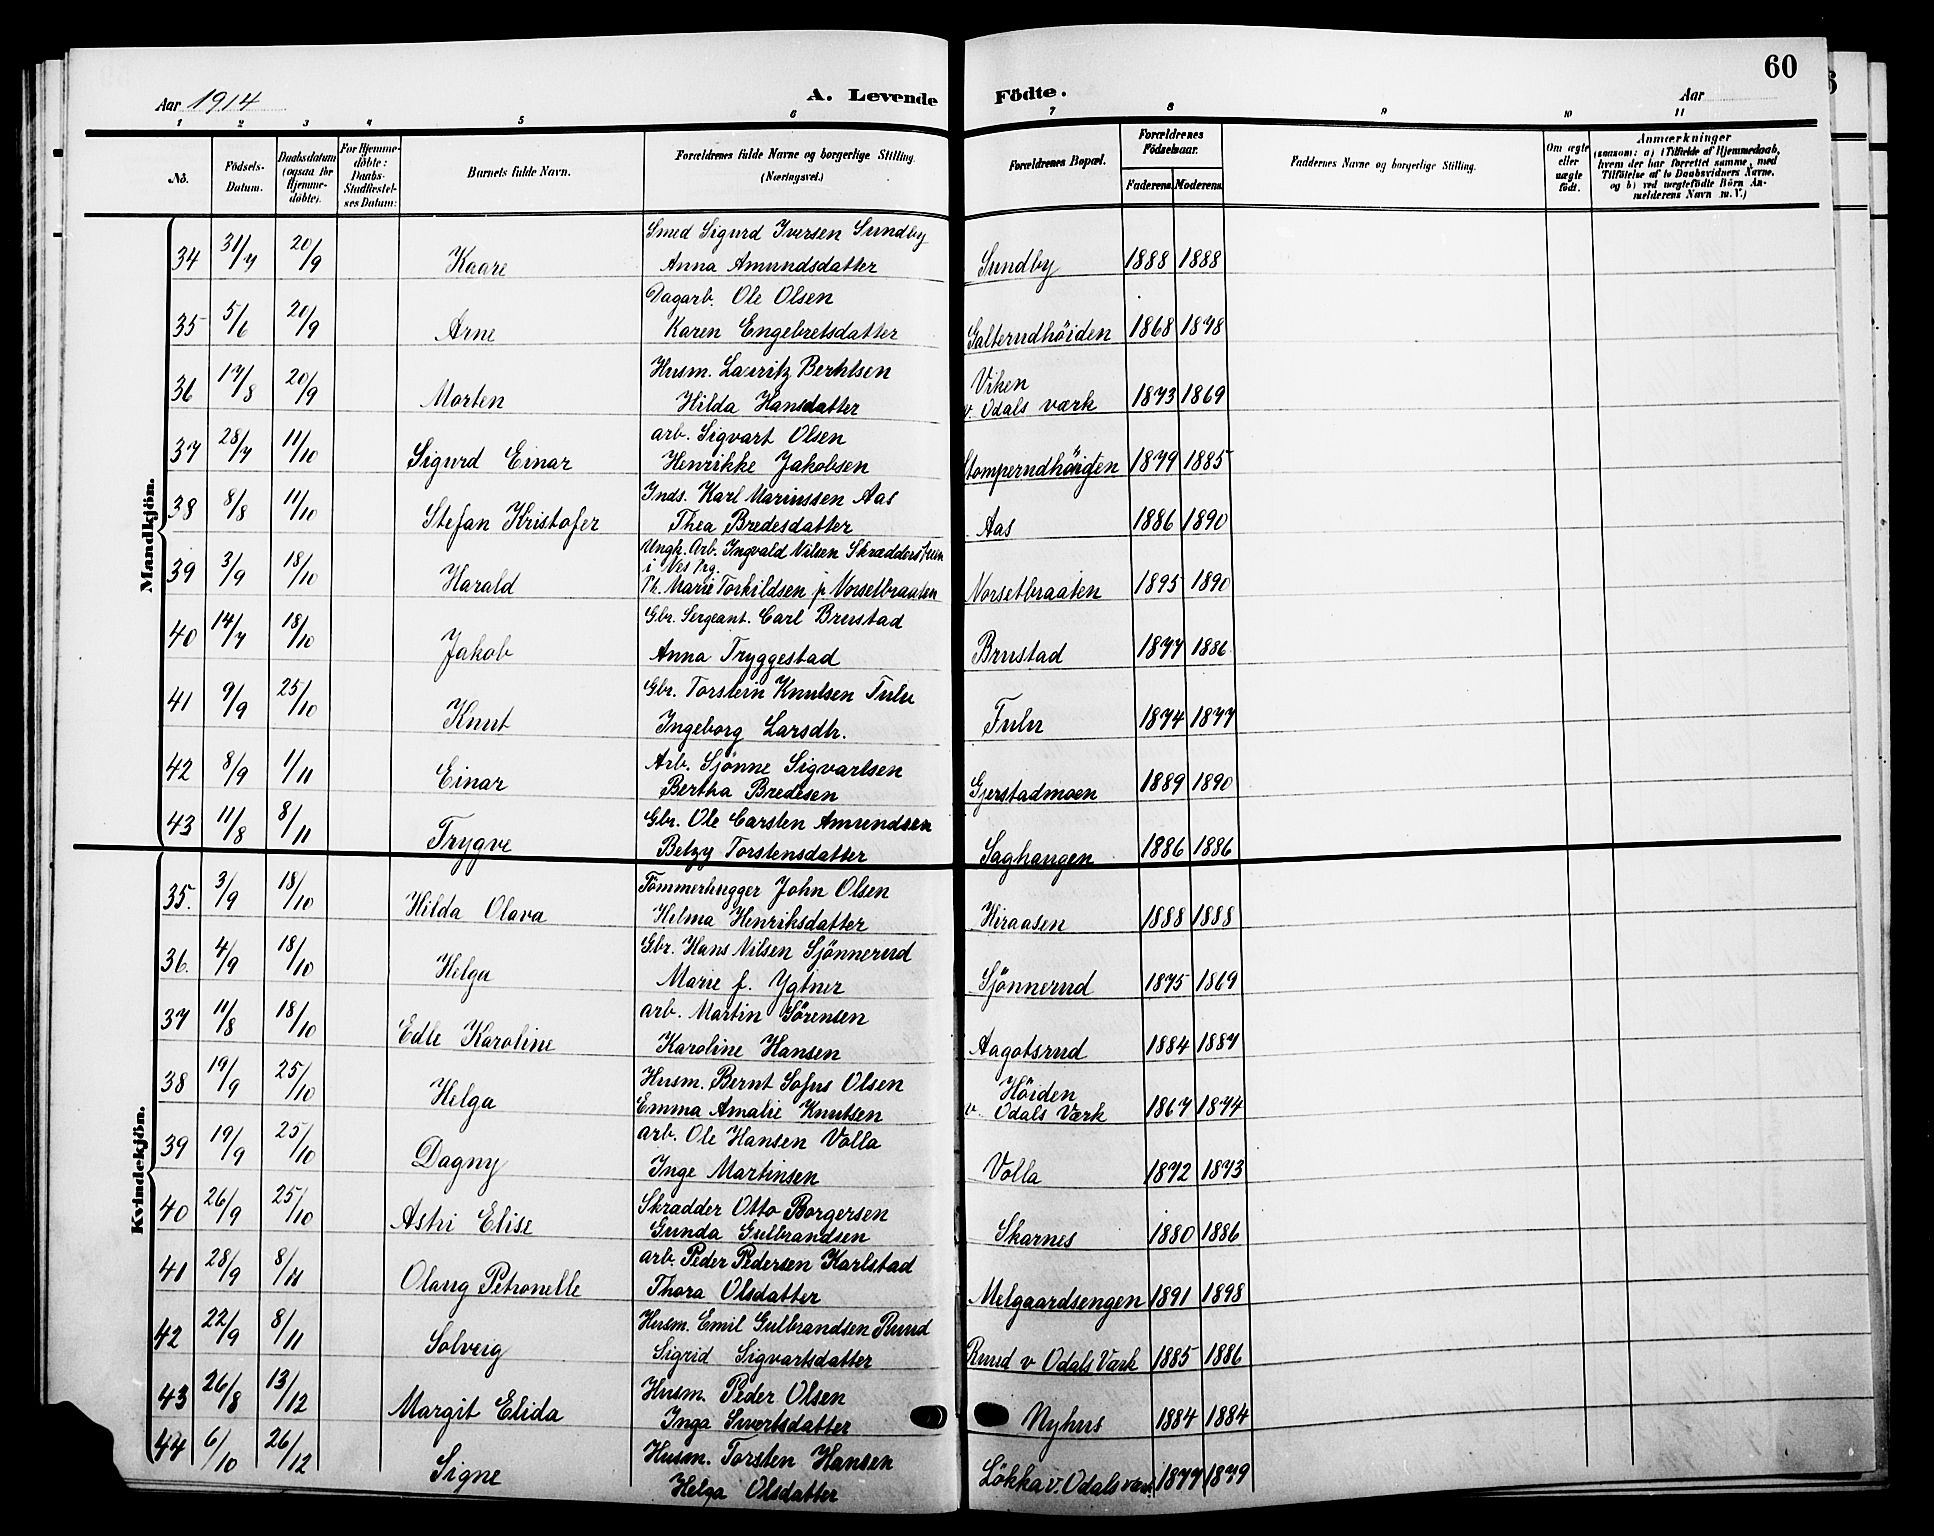 60
Aar 1914
A. Levende Födte.
Aar
1 2 3 4 5 6 7 8 9 10 11
No.
Födsels-Datum.
Daabsdatum (ogsaa for Hjemme-döbte).
For Hjemme-döbte: Daabs-Stadfæstel-ses Datum:
Barnets fulde Navn.
Forældrenes fulde Navne og borgerlige Stilling. (Næringsvei.)
Forældrenes Bopæl.
Forældrenes Födselsaar.
Faderens. Moderens.
Faddernes Navne og borgerlige Stilling.
Om ægte eller uægte födt.
Anmærkninger
(saasom: a) i Tilfælde af Hjemmedaab, hvem der har forrettet samme, med Tilföielse af to Daabsvidners Navne, og b) ved uægtefödte Börn An-melderens Navn m. V.)
Mandkjön.
Smed Sigurd Iversen Sundby
34 31/7 20/9 Kaare Anna Amundsdatter Sundby 1888 1888
Dagarb. Ole Olsen
35 5/6 20/9 Arne Karen Engebretsdatter Galterudhöiden 1868 1878
Husm. Lauritz Berntsen Viken
36 17/8 20/9 Morten Hilda Hansdatter v. Odals værk 1873 1869
arb. Sigvart Olsen
37 28/7 11/10 Sigurd Einar Henrikke Jakobsen Stomperudhöigen 1879 1885
Inds. Karl Mariussen Aas
38 8/8 11/10 Stefan Kristofer Thea Bredesdatter Aas 1886 1890
Ungk. Arb. Ingvald Nilsen Skrædderstuen
i Ves Prg.
39 3/9 18/10 Harald P. Marie Torkildsen p Norsetbraaten Norsetbraaten 1895 1890
Gbr. Sergeant. Carl Brustad
40 14/7 18/10 Jakob Anna Tryggestad Brustad 1877 1886
Gbr. Torstein Knutsen Fulu
41 9/9 25/10 Knut Ingeborg Larsdtr. Fulu 1874 1877
Arb. Sjønne Sigvartsen
42 8/9 1/11 Einar Bertha Bredesen Gjerstadmoen 1889 1890
Gbr. Ole Carsten Amundsen
43 11/8 8/11 Trygve Betzy Torstensdatter Saghaugen 1886 1886
Kvindekjön.
Tömmerhugger John Olsen
35. 3/9 18/10 Hilda Olava Helma Henriksdatter Hiraasen 1888 1888
Gbr. Hans Nilsen Sjønnerud
36. 4/9 18/10 Helga Marie f. Ygtner Sjønnerud 1875 1869
arb. Martin Sörensen
37 11/8 18/10 Edle Karoline Karoline Hansen Aagotsrud 1884 1887
Husm. Bernt Sofus Olsen Höiden
38 19/9 25/10 Helga Emma Amalie Knutsen v. Odals Værk 1867 1874
arb. Ole Hansen Volla
39 19/9 25/10 Dagny Inge Martinsen Volla 1872 1873
Skrædder Otto Borgersen
40 26/9 25/10 Astri Elise Gunda Gulbrandsen Skarnes 1880 1886
arb. Peder Pedersen Karlstad
41 28/9 8/11 Olaug Petronelle Thora Olsdatter Melgaardsengen 1891 1898
Husm. Emil Gulbrandsen Ruud
42 22/9 8/11 Solveig Sigrid Sigvartsdatter Ruud v Odals Værk 1885 1886
Husm. Peder Olsen
43 26/8 13/12 Margit Elida Inga Sivertsdatter Nyhus 1884 1884
Husm. Torsten Hansen
44 6/10 26/12 Signe Helga Olsdatter Lökka v. Odals værk 1877 1879